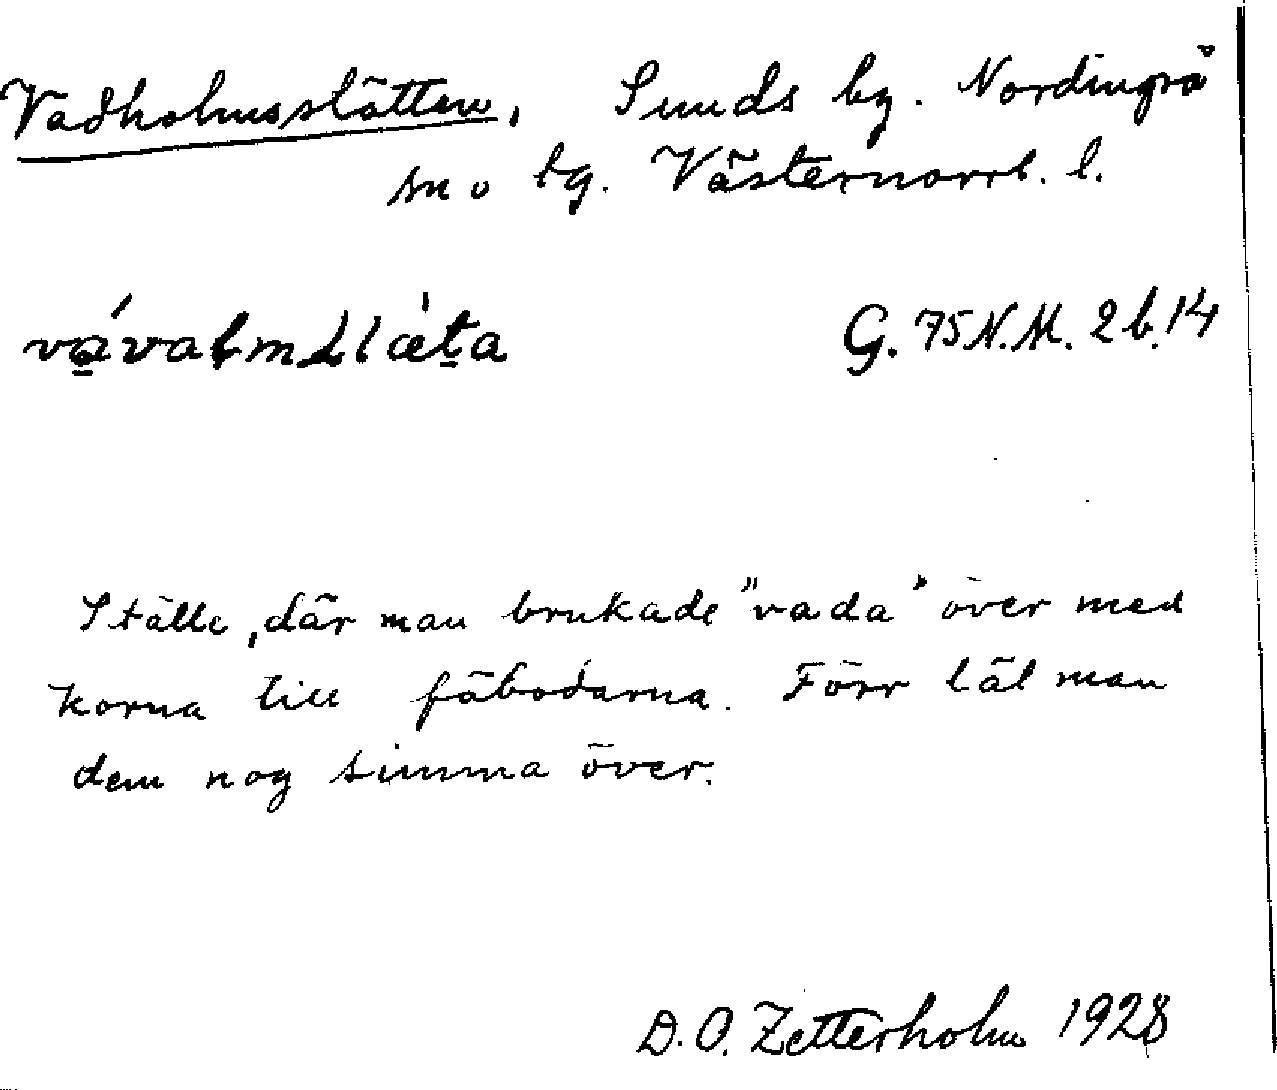 Vadholmsslätten, Sunds by. Nordingrå
sn o tg. Västernorrl. l.
G. 75 N.M. 2 b. 14
Ställe, där man brukade "vada" över med
korna till fäbodarna. Förr lät man
dem nog simma över.
D. O. Zetterholm 1928